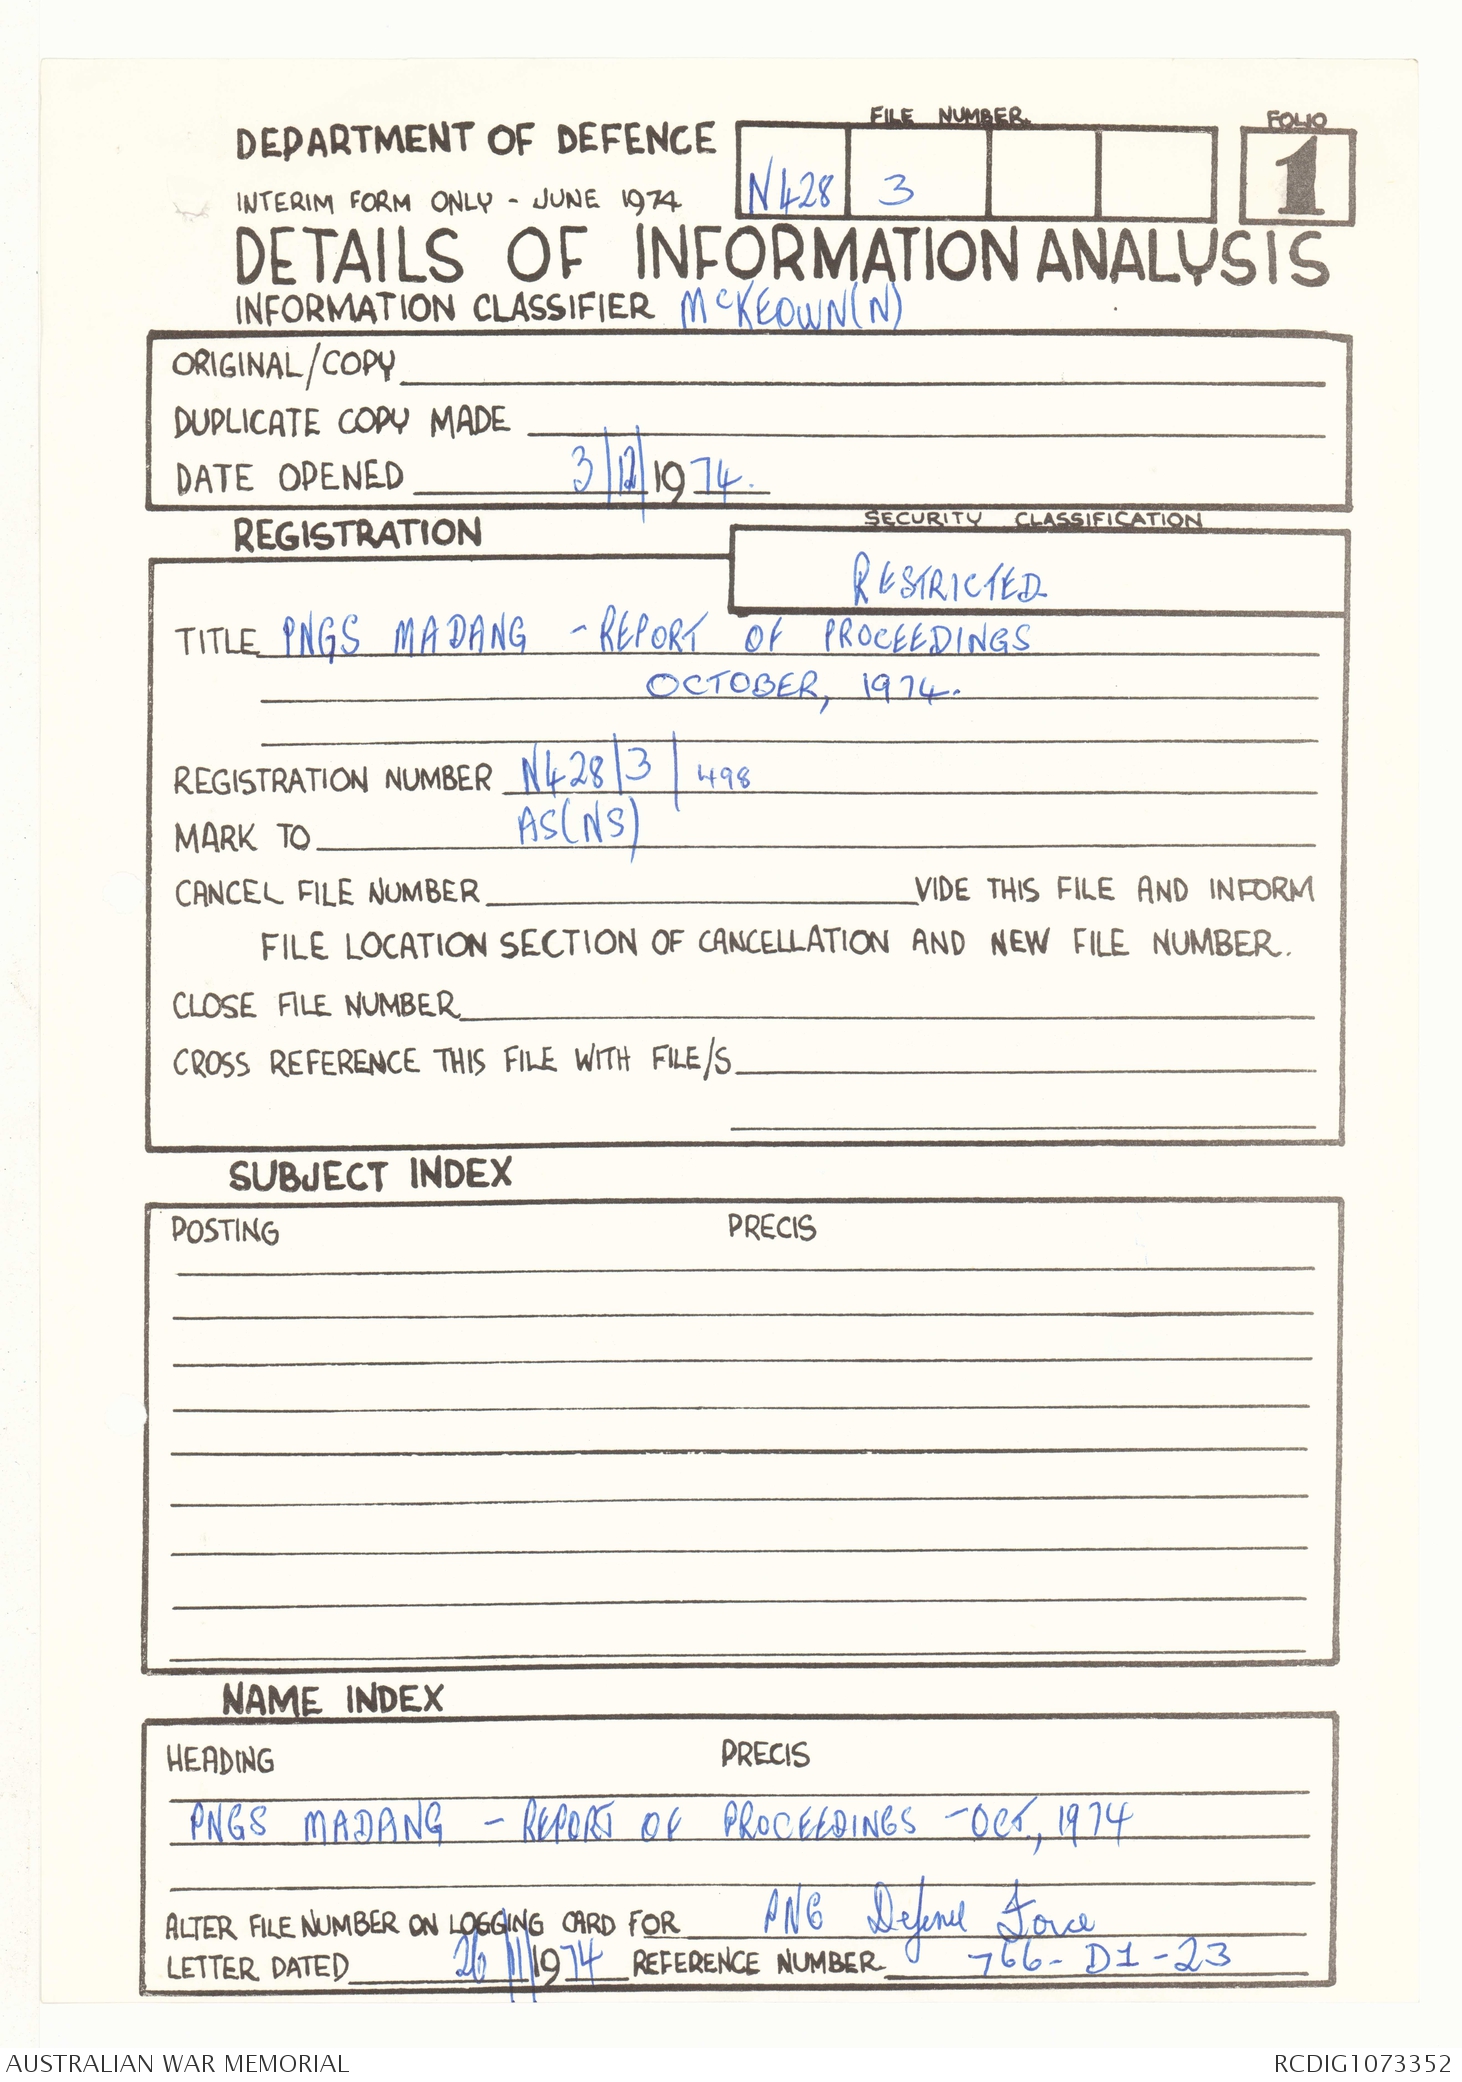 FILE NUMBER.
FOLIO
DEPARTMENT OF DEFENCE
N428 3
1
INTERIM FORM ONLY - JUNE 1974
DETAILS OF INFORMATION ANALYSIS
INFORMATION CLASSIFIER McKEOWN(N)
ORIGINAL/COPY
DUPLICATE COPY MADE
DATE OPENED 3/12/1974.
REGISTRATION
SECURITY CLASSIFICATION
RESTRICTED
TITLE PNGS MADANG - REPORT OF PROCEEDINGS
OCTOBER, 1974.
REGISTRATION NUMBER N428/3/498
MARK TO AS(NS)
CANCEL FILE NUMBER VIDE THIS FILE AND INFORM
FILE LOCATION SECTION OF CANCELLATION AND NEW FILE NUMBER.
CLOSE FILE NUMBER
CROSS REFERENCE THIS FILE WITH FILE/S
SUBJECT INDEX
POSTING PRECIS
NAME INDEX
HEADING PRECIS
PNGS MADANG - REPORT OF PROCEEDINGS - OCT., 1974
ALTER FILE NUMBER ON LOGGING CARD FOR PNG Defence Force
LETTER DATED 26/11/1974 REFERENCE NUMBER 766-D1-23
AUSTRALIAN WAR MEMORIAL
RCDIG1073352